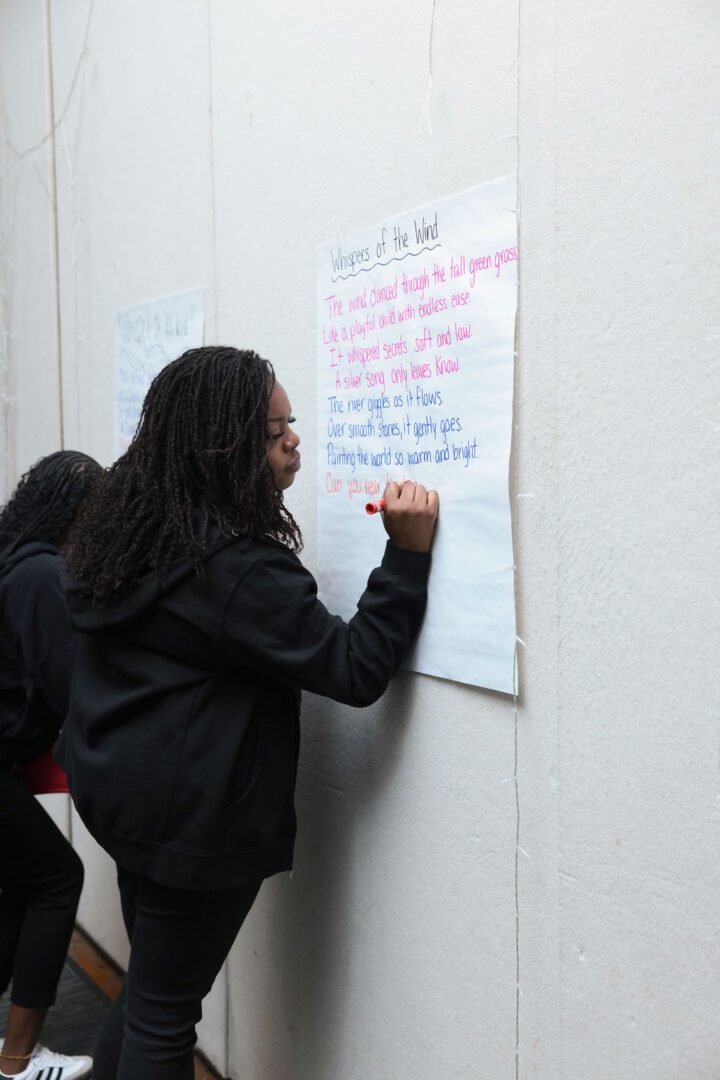 Whispers of the Wind
The wind danced through the tall green grass
Like a playful child with endless ease.
It whispered secrets soft and low.
A silver song only leaves know.
The river giggles as it flows.
Over smooth stones, it gently goes.
Painting the world so warm and bright.
Can you hear